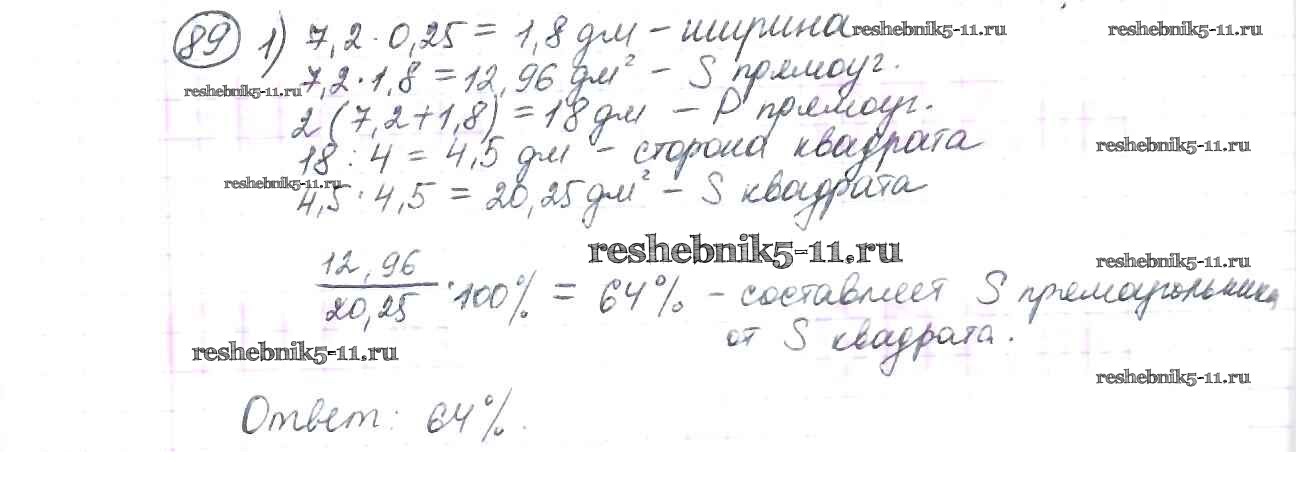 89 1) 7,2 · 0,25 = 1,8 дм – ширина reshebnik5-11.ru
7,2 · 1,8 = 12,96 дм² – S прямоуг.
reshebnik5-11.ru
2 (7,2 + 1,8) = 18 дм – P прямоуг.
18 : 4 = 4,5 дм – сторона квадрата reshebnik5-11.ru
reshebnik5-11.ru
4,5 · 4,5 = 20,25 дм² – S квадрата
reshebnik5-11.ru
12,96 reshebnik5-11.ru
20,25 · 100% = 64% – составляет S прямоугольника
от S квадрата.
reshebnik5-11.ru
reshebnik5-11.ru
Ответ: 64%.